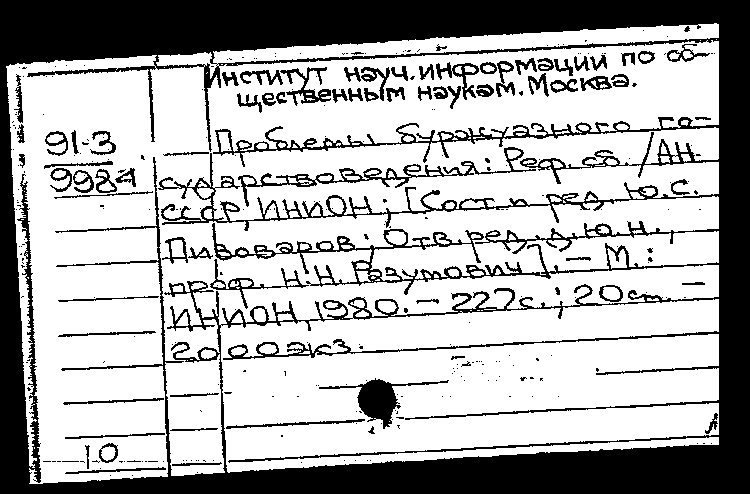 Институт науч. информации по об-
щественным наукам. Москва.
91-3
9984
Проблемы буржуазного го-
сударствоведения: Реф. сб. / АН
СССР, ИНИОН; [Сост. и ред. Ю.С.
Пивоваров; Отв. ред. д.ю.н.,
проф. Н.Н. Разумович]. – М.:
ИНИОН, 1980. – 227с.; 20см. –
2000экз.
10